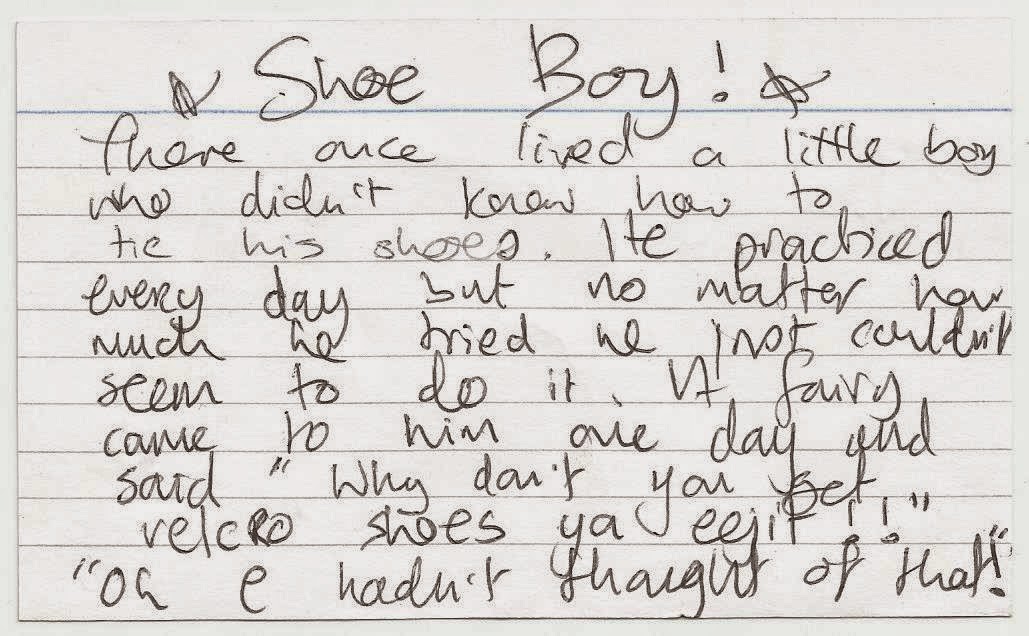 ☆ Shoe Boy! ☆
there once lived a little boy
who didn't know how to
tie his shoes. He practiced
every day but no matter how
much he tried he just couldn't
seem to do it. A fairy
came to him one day and
said "Why don't you get
velcro shoes ya eejit!!"
"Oh I hadn't thought of that!"